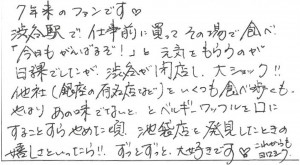 7年来のファンです♡
渋谷駅で、仕事前に買ってその場で食べ
「今日もがんばるぞ！」と元気をもらうのが
日課でしたが、渋谷が閉店し、大ショック!!
他社（銀座の有名店など）をいくつも食べ歩くも、
やはりあの味でないと、とベルギーワッフルを口に
することすらやめた頃、池袋店を発見したときの
嬉しさといったら!!。ずっとずっと、大好きです♡
これからもヨロシク